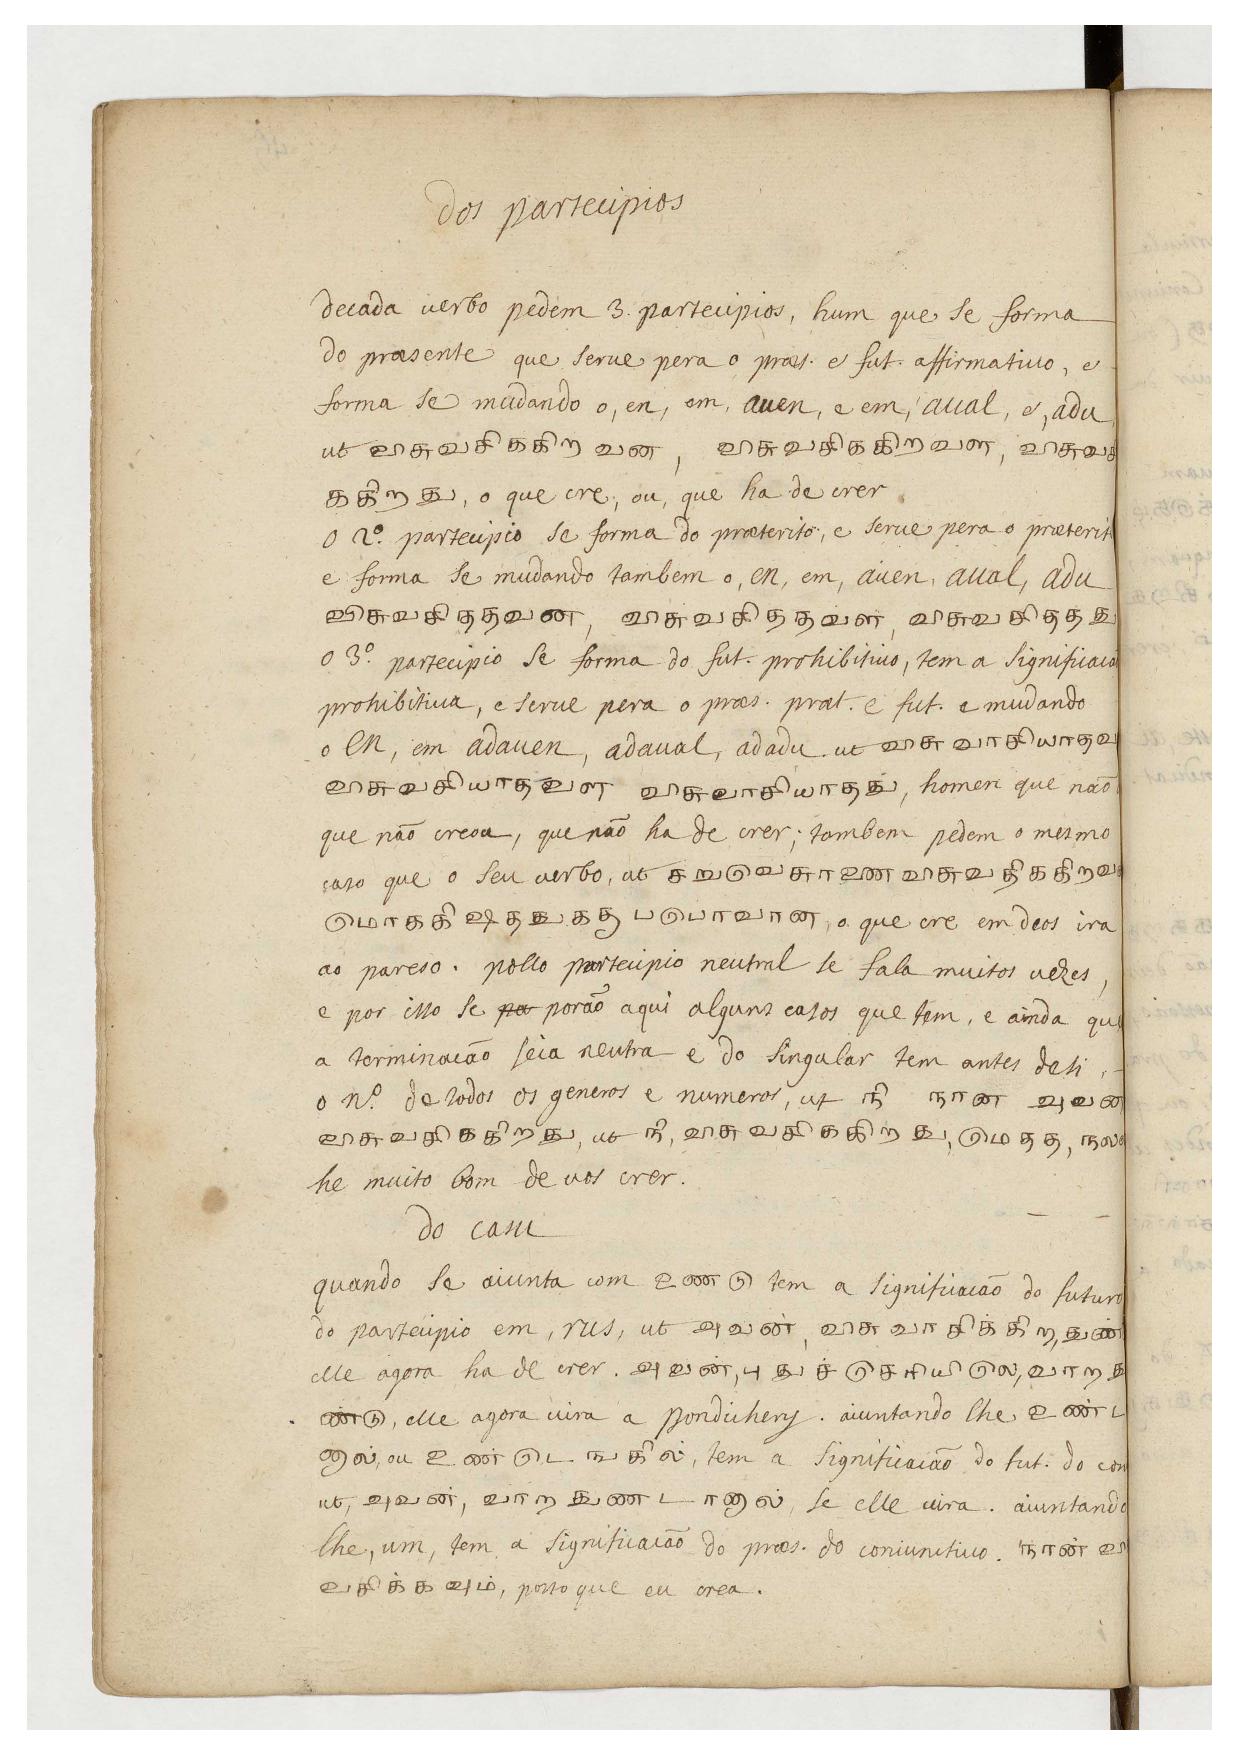 dos partecipios
decada verbo pedem 3. partecipios, hum que se forma
do præsente que serue pera o præs. e fut. affirmatiuo, e
forma se mudando o, en, em, auen, e em, aual, e, adu
ut விசுவசிககிறவன, விசுவசிககிறவள, விசுவசி
ககிறது, o que cre, ou, que ha de crer
O 2º. partecipio se forma do præterito, e serue pera o præterit
e forma se mudando tambem o, en, em, auen, aual, adu
விசுவசிததவன, விசுவசிததவள, விசுவசிததது
o 3º. partecipio se forma do fut. prohibitiuo, tem a significacã
prohibitiua, e serue pera o præs. præt. e fut. e mudando
o en, em adauen, adaual, adadu ut விசுவாசியாதவ
விசுவசியாதவள விசுவாசியாதது, homen que não
que não creou, que não ha de crer; tambem pedem o mesmo
caso que o seu uerbo, ut விசுவதிககிறவ
மொககிஷததுகது படுபாவான, o que cre em deos ira
ao pareso. pello partecipio neutral se fala muitos uezes,
e por isso se pa porão aqui alguns casos que tem, e ainda que
a terminacão seia neutra e do singular tem antes desi
o nº. de todos os generos e numeros, ut நி நான அவன
விசுவசிககிறது, ut நி, விசுவசிககிறது, மெதத, நல
he muito bom de uos crer.
do casu
quando se aiunta com உணடு tem a significacão do futuro
do partecipio em, rus, ut அவன், விசுவாசிக்கிற,துண்
elle agora ha de crer. அவன், புதுச்செரியிலெ, வாறது
ண்டு, elle agora uira a pondichery. aiuntando lhe உண்ட
னால், ou உண்டெ ஙகில், tem a significacão do fut. do con
ut, அவன், வாறதுணடானால், se elle uira. aiuntando
lhe, um, tem a significacão do præs. do coniunctiuo. நான் வி
வசிக்கவும், posto que eu crea.